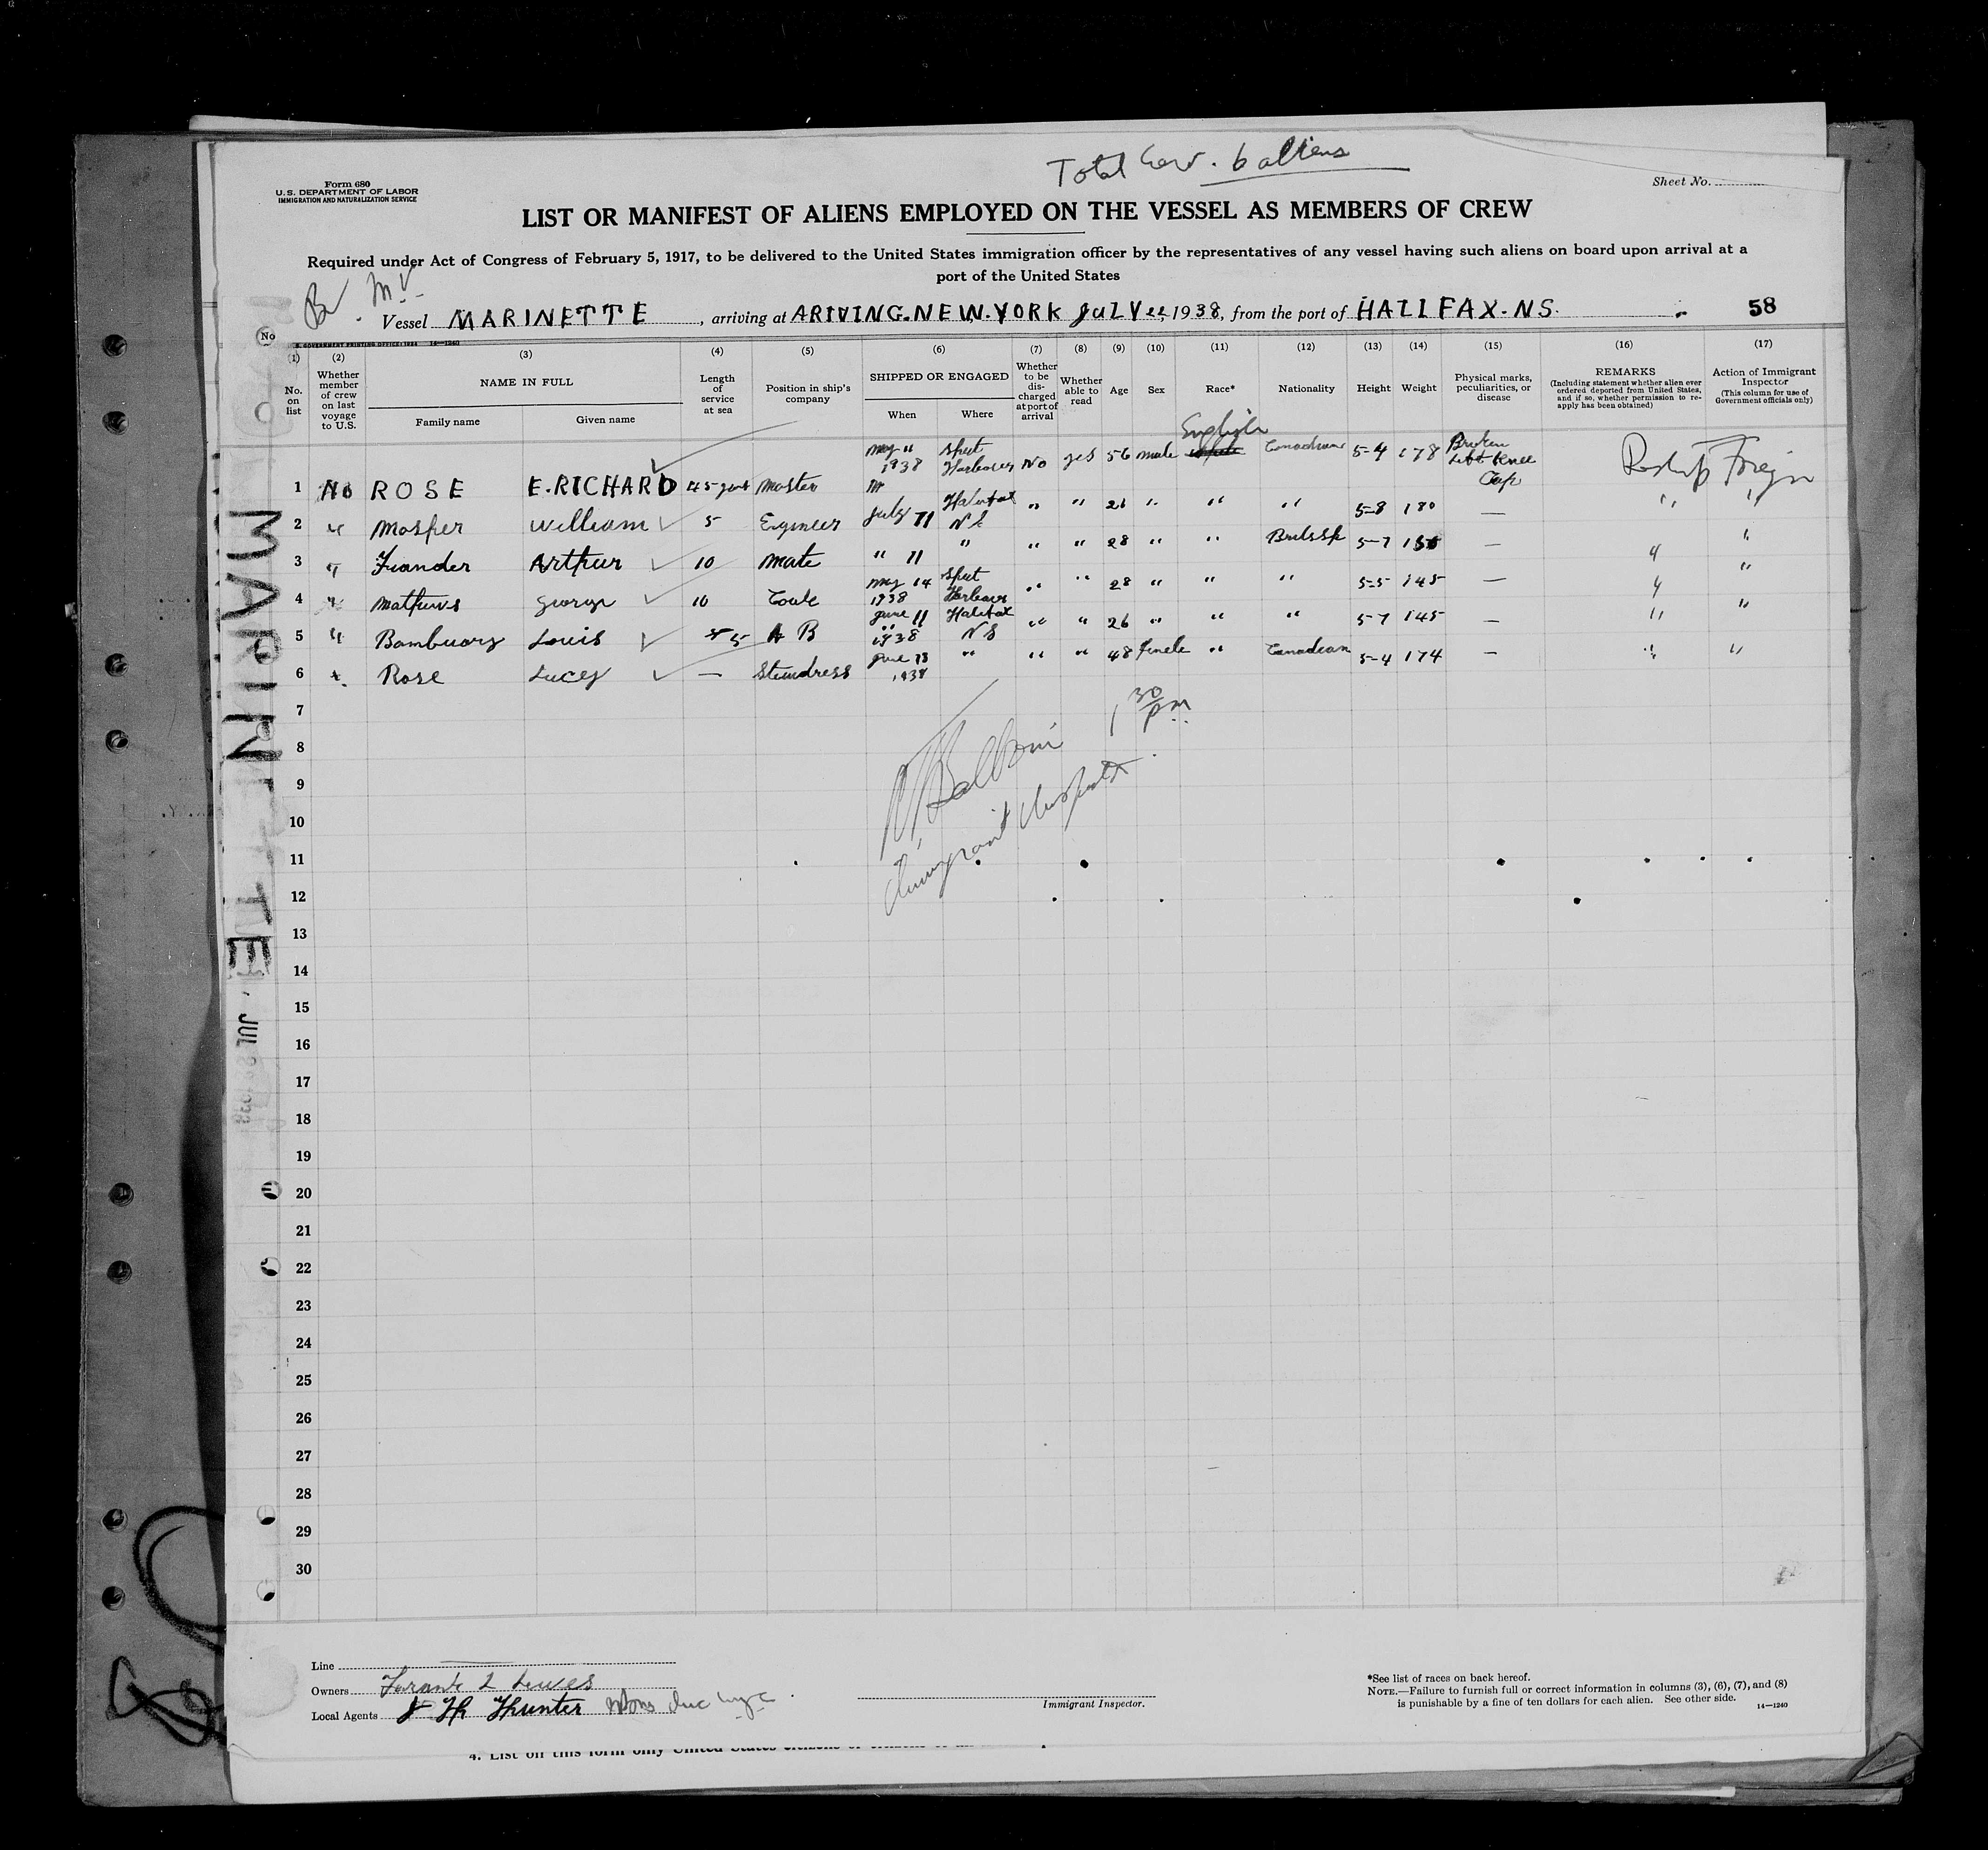 Total Crew. 6 aliens
Form 680
U. S. DEPARTMENT OF LABOR
IMMIGRATION AND NATURALIZATION SERVICE
Sheet No.
LIST OR MANIFEST OF ALIENS EMPLOYED ON THE VESSEL AS MEMBERS OF CREW
Required under Act of Congress of February 5, 1917, to be delivered to the United States immigration officer by the representatives of any vessel having such aliens on board upon arrival at a
port of the United States
Br M.V.
Vessel MARINETTE, arriving at ARIVING. NEW. YORK JULY 1938, from the port of HALIFAX. NS.
58
No
U. S. GOVERNMENT PRINTING OFFICE: 1934 14—1240
(1) (2) (3) (4) (5) (6) (7) (8) (9) (10) (11) (12) (13) (14) (15) (16) (17)
No. on list
Whether member of crew on last voyage to U.S.
NAME IN FULL
Family name Given name
Length of service at sea
Position in ship's company
SHIPPED OR ENGAGED
When Where
Whether to be discharged at port of arrival
Whether able to read
Age
Sex
Race*
Nationality
Height
Weight
Physical marks, peculiarities, or disease
REMARKS
(Including statement whether alien ever ordered deported from United States, and if so, whether permission to reapply has been obtained)
Action of Immigrant Inspector
(This column for use of Government officials only)
English
1 No ROSE E. RICHARD 45 years Master May 11 1938 Sheet Harbour No yes 56 male Canadian 5-4 178 Broken Left Knee Cap Reship Foreign
2 " Mosher William 5 Egineer July 11 Halifax NS " " 26 " " " 5-8 180 — " "
3 " Arthur 10 Mate " 11 " " " 28 " " 5-7 — " "
4 " Mathews George 10 Cook May 14 1938 Sheet Harbour " " 28 " " " 5-5 145 — " "
5 " Louis 5 A B June 11 1938 Halifax NS " " 26 " " " 5-7 145 — " "
6 " Rose Lucey — Stewdress June 1938 " " " 48 female " Canadian 5-4 174 — " "
7
1 30 pm
8
9
10
Immigrant Inspector
11
12
13
14
15
16
17
18
19
20
21
22
23
24
25
26
27
28
29
30
MARINETTE, JUL
Line
Owners
Local Agents Hunter
Immigrant Inspector.
*See list of races on back hereof.
NOTE.—Failure to furnish full or correct information in columns (3), (6), (7), and (8)
is punishable by a fine of ten dollars for each alien. See other side.
14—1240